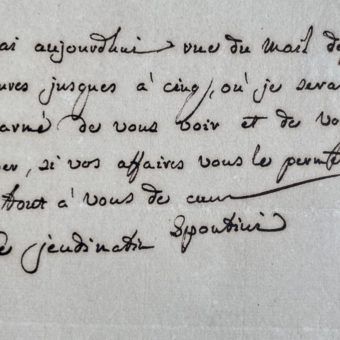 ai aujourdhui rue du Mail de
ures jusques à cinq, où je sera
armé de vous voir et de vo
er, si vos affaires vous le permet
tout à vous de cœur
e jeudi matin Spontini